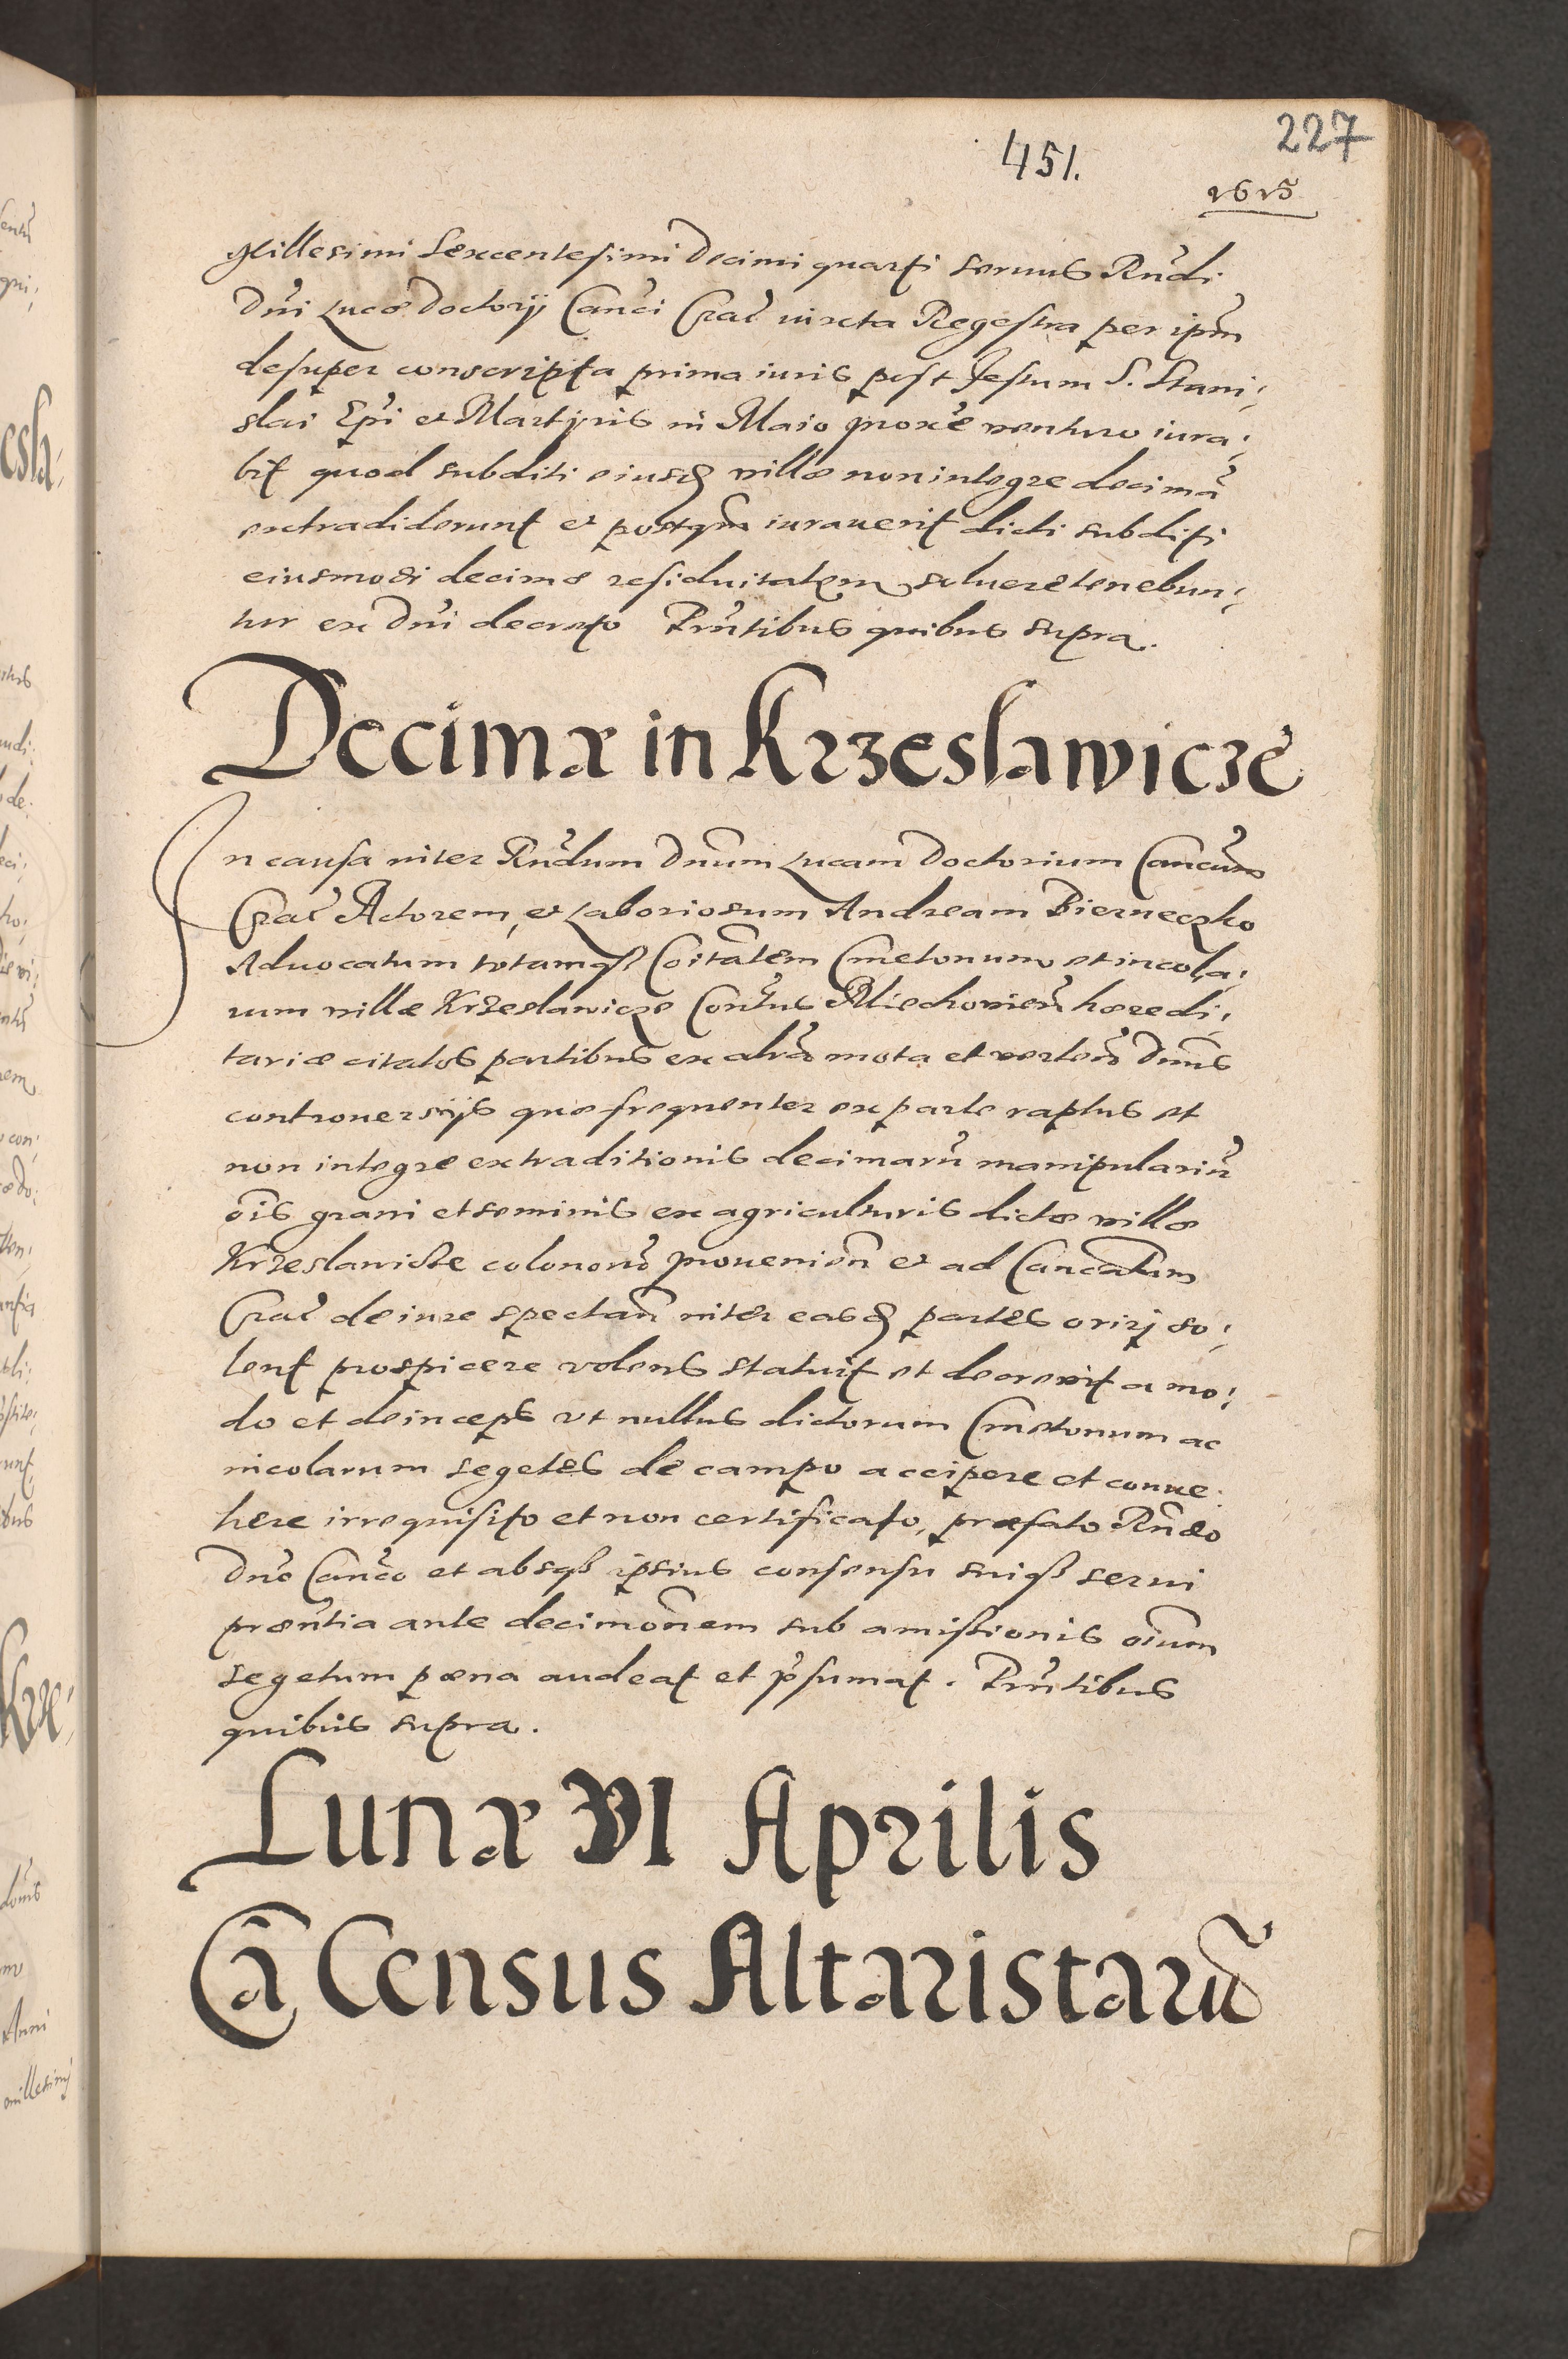 227
451.
1615
Millesimi Sexcentesimi Decimi quarti servus Rñdi
Dñi Lucæ Doctorij Canci Crac iuxta Regestra per ipm
desuper conscripta prima iuris post festum S. Stani,
slai Epi et Martyris in Maio proxe venturo iura,
bit quod subditi eiusd villæ non integre decimã
extradiderunt et postqm iuraverit dicti subditi
eiusmodi decimæ residuitatem solvere tenebun,
tur ex Dñi decreto Pntibus quibus supra.
Decimæ in Krzeslawicze
In causa inter Rndum Dnum Lucam Doctorium Cancum
Crac Actorem, et Laboriosum Andream Bierneczko
Advocatum totamq Coitatem Cmetonum et incola,
rum villæ Krzeslawicze Contus Miechovien hæredi,
tariæ citatos partibus ex altra mota et verten Dnus
controversijs quæ frequenter ex parte raptus et
non integre extraditionis decimarũ manipulariũ
õis grani et seminis ex agriculturis dictæ villæ
Krzeslawicze colonorũ provenien et ad Cancatum
Crac de iure spectan inter easd partes orirj so,
lent prospicere volens statuit et decrevit a mo,
do et deinceps ut nullus dictorum Cmetonum ac
incolarum segetes de campo accipere et conve
here irrequisito et non certificato, præfato Rndo
Dno Canco et absq ipsius consensu suiq servi
præntia ante decimõnem sub amissionis oium
segetum pæna audeat et psumat. Pntibus
quibus supra.
Lunæ VI Aprilis
Cã Census Altaristarũ